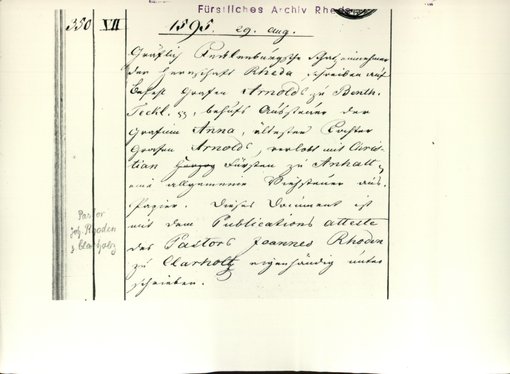 Fürstliches Archiv Rheda
350 VII 1595. 29. Aug.
Gräflich Tecklenburgsche Schatzeinnehmer
der Herrschaft Rheda, schreiben auf
Befehl Grafen Arnolds zu Benth.
Teckl. pp, behufs Aussteuer der
Grafinn Anna, ältesten Tochter
Grafen Arnolds, verlobt mit Chris-
tian Herzog Fürsten zu Anhalt,
eine allgemeine Viehsteuer aus.
Papier. Dieses Document ist
mit dem Publications atteste
des Pastors Joannes Rhoden
zu Clarholtz eigenhändig unter
schrieben.
Pastor
Joh. Rhoden
z Clarholz